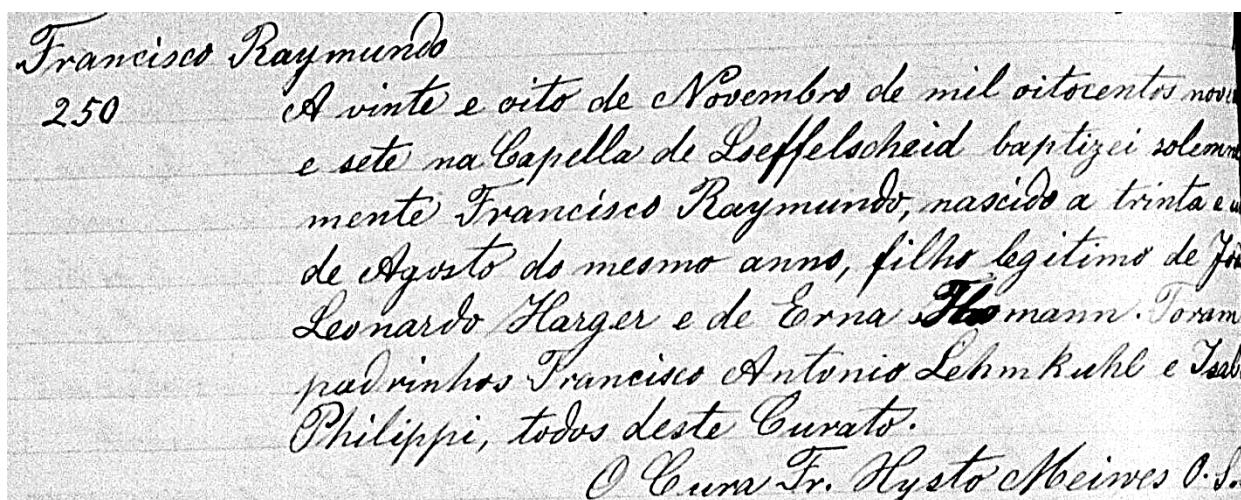 Francisco Raymundo
250 A vinte e oito de Novembro de mil oitocentos nove
e sete na Capella de Lseffelscheid baptizei solemne
mente Francisco Raymundo, nascido a trinta e u
de Agosto do mesmo anno, filho legitimo de Joã
Leonardo Harger e de Erna Thomann. Foram
padrinhos Francisco Antonio Lehmkuhl e Isab
Philippi, todos deste Curato.
O Cura Fr. Xysto Meiwes O.S.